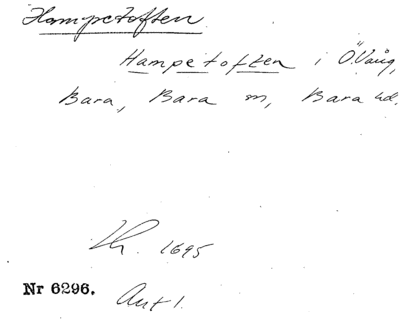 Hampetoften
Hampetoften i Ö. Vång,
Bara, Bara sn, Bara hd.
Lh. 1695
Nr 6296. Ant 1.